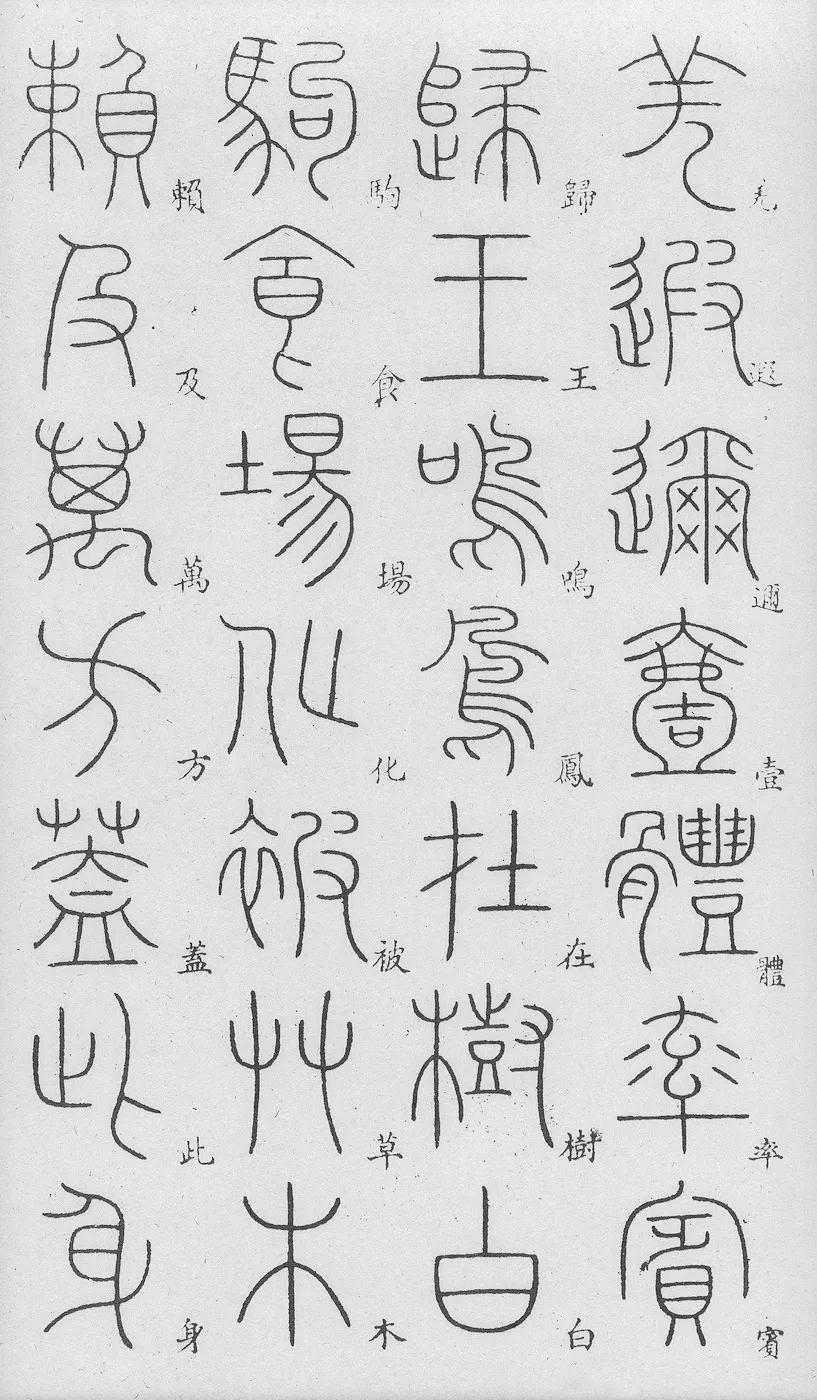 羌遐邇壹體率賓
歸王鳴鳳在樹白
駒食場化被草木
賴及萬方蓋此身